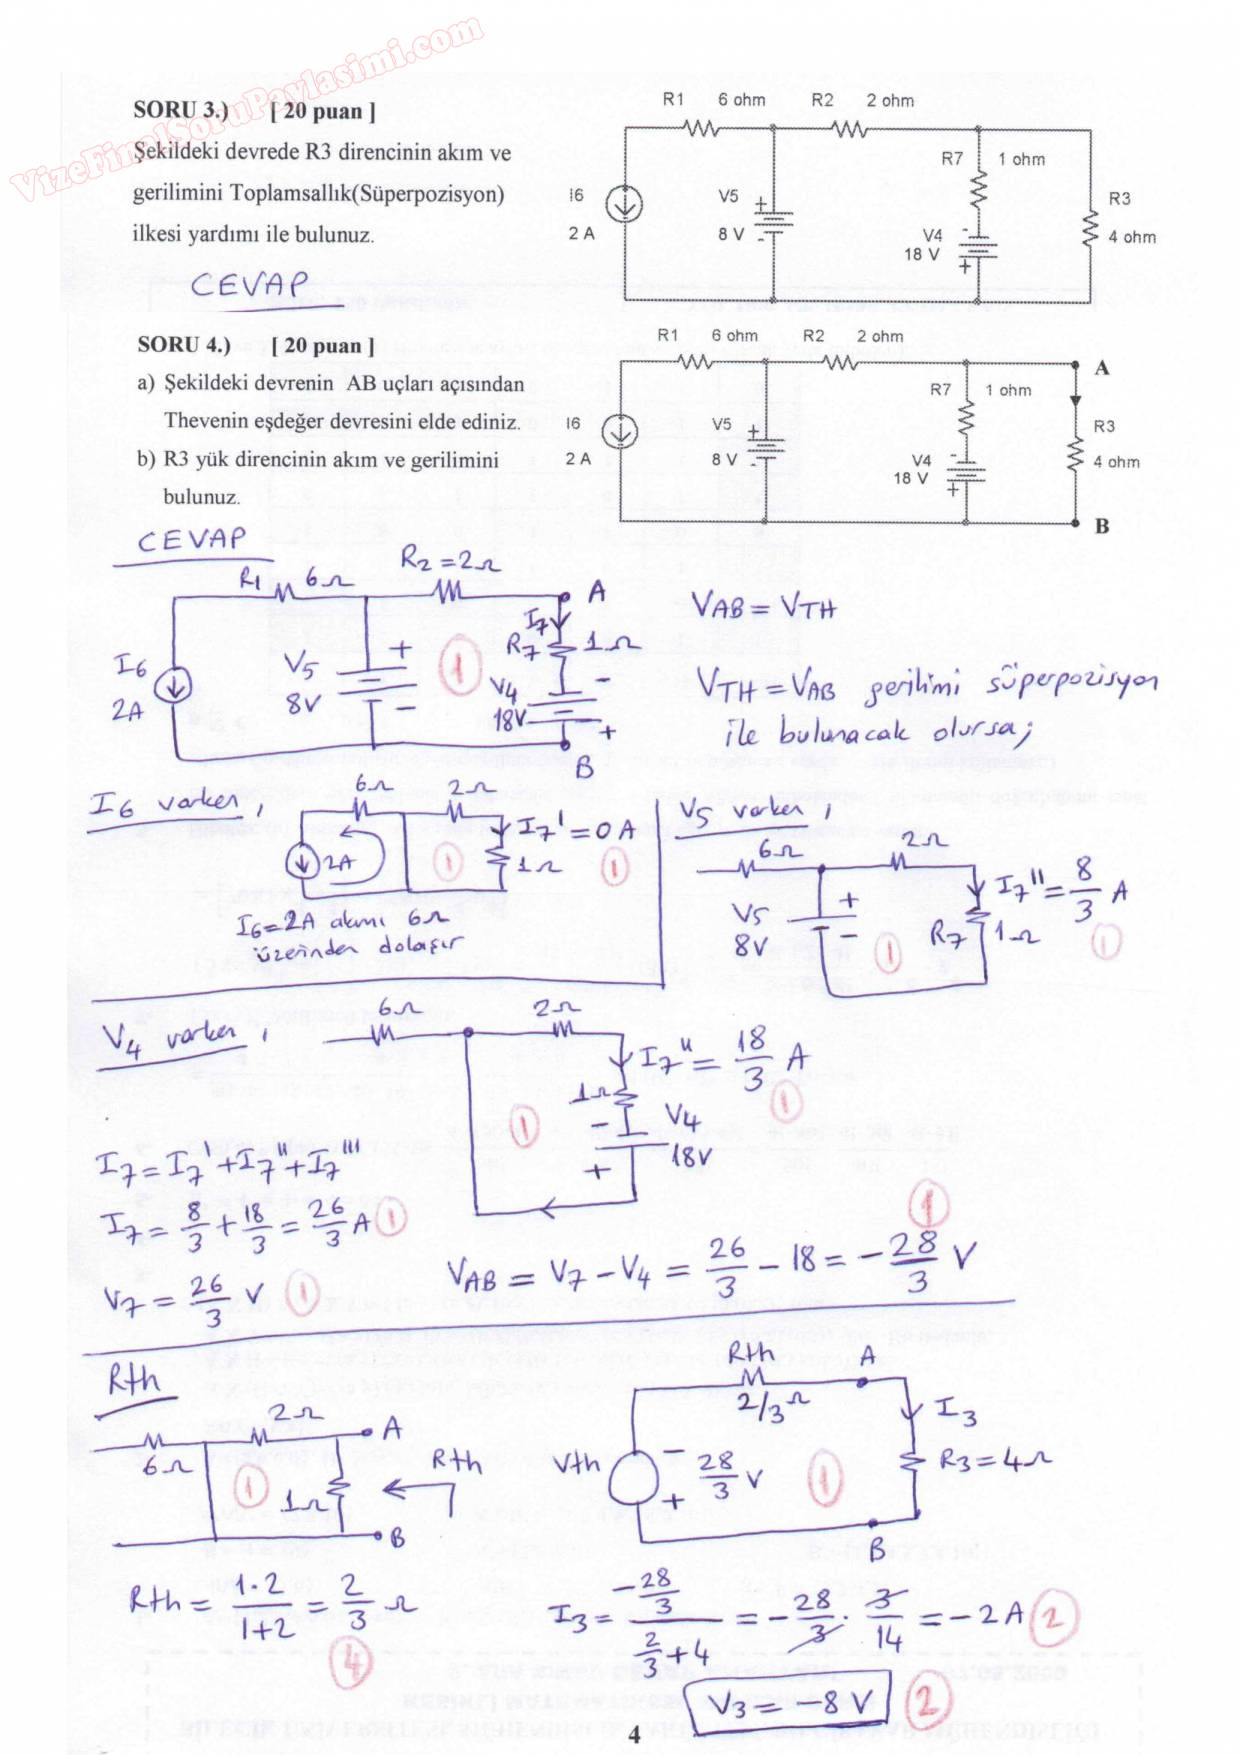 VizeFinalSoruPaylasimi.com
SORU 3.) [ 20 puan ]
Şekildeki devrede R3 direncinin akım ve
gerilimini Toplamsallık(Süperpozisyon)
ilkesi yardımı ile bulunuz.
CEVAP
R1 6 ohm R2 2 ohm
R7 1 ohm
I6 V5 + R3
2 A 8 V - V4 - 4 ohm
18 V +
SORU 4.) [ 20 puan ]
a) Şekildeki devrenin AB uçları açısından
Thevenin eşdeğer devresini elde ediniz.
b) R3 yük direncinin akım ve gerilimini
bulunuz.
R1 6 ohm R2 2 ohm
A
R7 1 ohm
I6 V5 + R3
2 A 8 V - V4 - 4 ohm
18 V +
B
CEVAP
R1 6Ω R2=2Ω A
I7
R7 1Ω
I6 V5 + 1 V4 -
2A 8V - 18V +
B
VAB = VTH
VTH = VAB gerilimi süperpozisyon
ile bulunacak olursa;
I6 varken,
6Ω 2Ω
2A 1 I7' = 0A
1Ω 1
I6=2A akımı 6Ω
üzerinden dolaşır
V5 varken,
6Ω 2Ω
V5 + I7'' = 8/3 A
8V - 1 R7 1Ω 1
V4 varken,
6Ω 2Ω
I7'' = 18/3 A
1Ω 1
1 - V4
+ 18V
I7 = I7 + I7'' + I7'''
I7 = 8/3 + 18/3 = 26/3 A 1
V7 = 26/3 V 1
1
VAB = V7 - V4 = 26/3 - 18 = -28/3 V
Rth
2Ω A
6Ω 1 1Ω Rth
B
Rth = 1.2/1+2 = 2/3 Ω
4
Rth A
2/3Ω I3
Vth - 28/3 V + 1 R3=4Ω
B
I3 = -28/3 / 2/3+4 = -28/3 . 3/14 = -2A 2
V3 = -8V 2
4